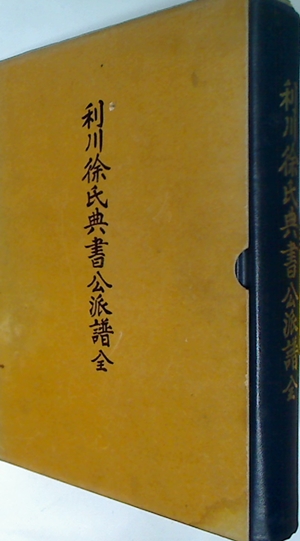 利川徐氏典書公派譜全
利川徐氏典書公派譜全